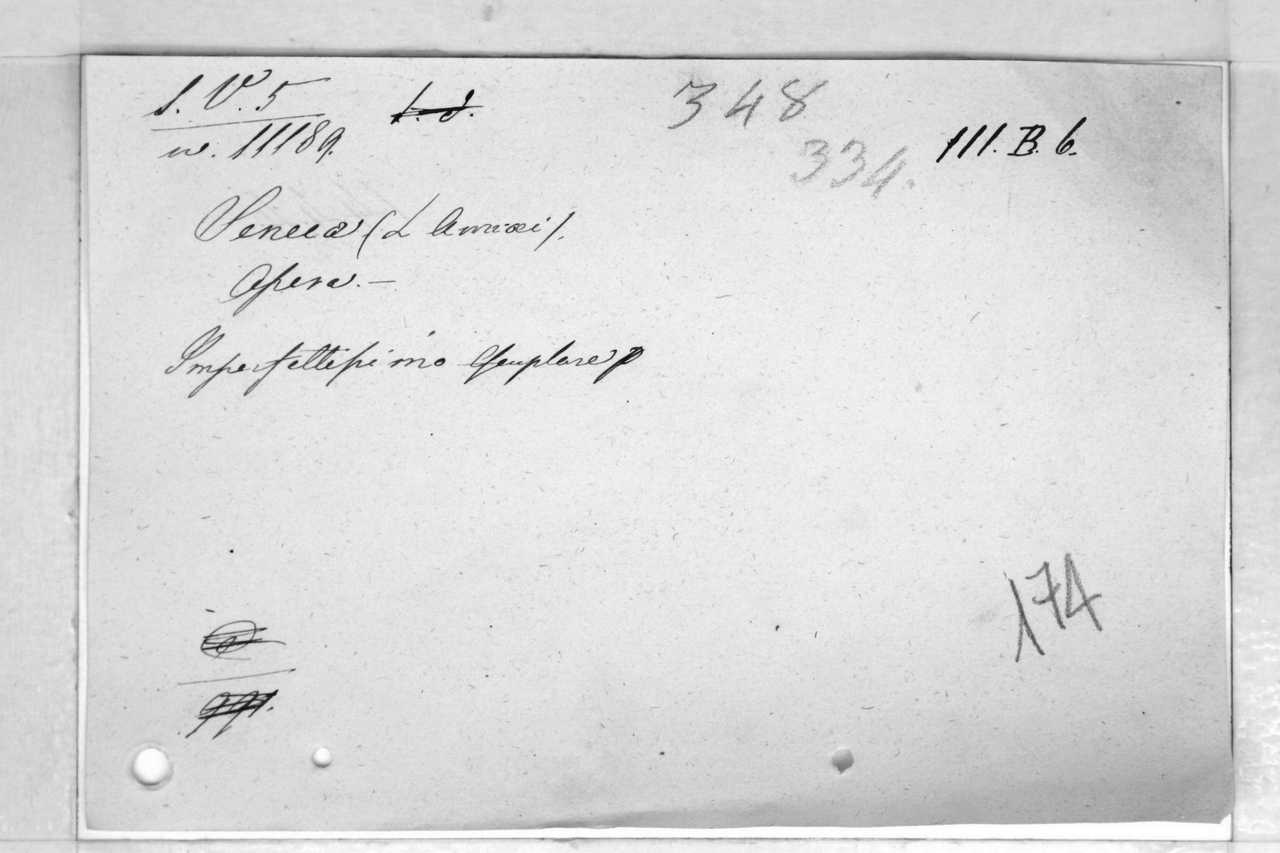 S. V. 5
n. 11189.
348
334.
III. B. 6.
Seneca (L Annaei).
Opera. —
Imperfettissimo Esemplare
174